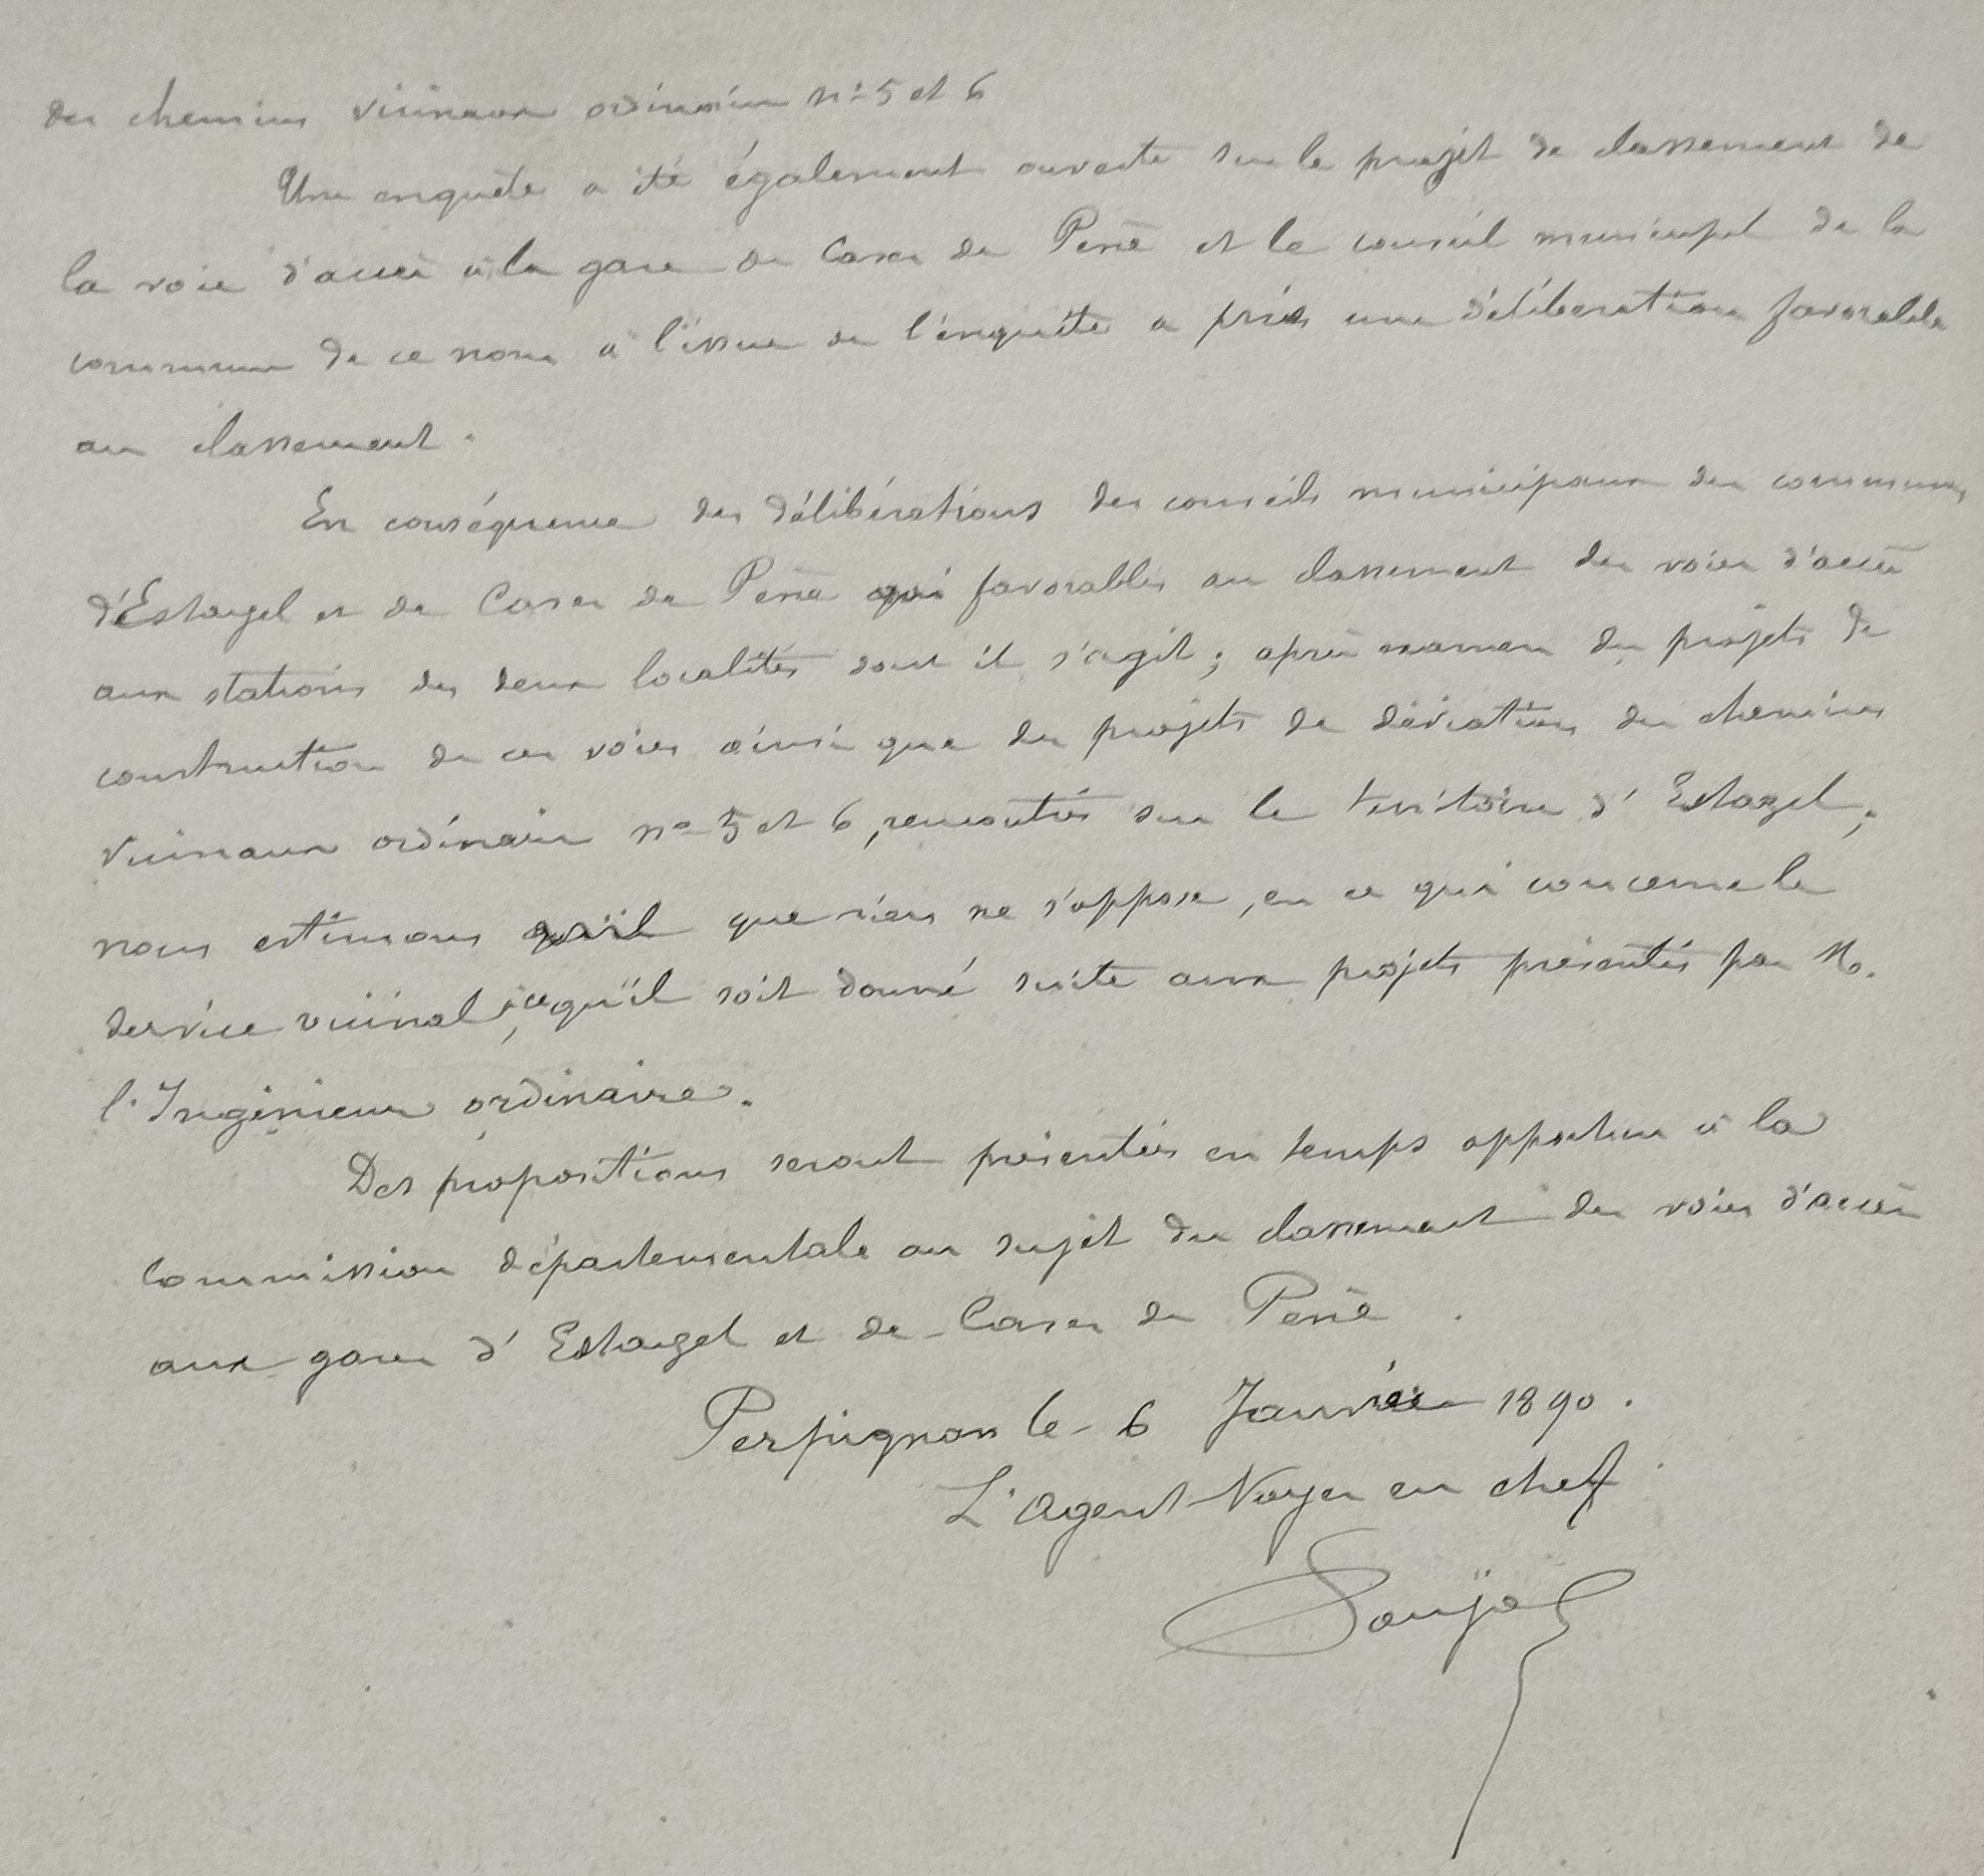 des chemins vicinaux ordinaires nos 5 et 6
Une enquête a été également ouverte sur le projet de classement de
la voie d'accès à la gare de Cases de Pène et le conseil municipal de la
commune de ce nom à l'issue de l'enquête a pris une délibération favorable
au classement.
En conséquence des délibérations des conseils municipaux des communes
d'Estagel et de Cases de Pène qui favorables au classement des voies d'accès
aux stations des deux localités dont il s'agit; après examen des projets de
construction de ces voies ainsi que des projets de déviation des chemins
vicinaux ordinaires nos 5 et 6, rencontrés sur le territoire d'Estagel;
nous estimons qu'il que rien ne s'oppose, en ce qui concerne le
service vicinal, à ce qu'il soit donné suite aux projets présentés par M.
l'Ingénieur ordinaire.
Des propositions seront présentées en temps opportun à la
Commission départementale au sujet du classement des voies d'accès
aux gares d'Estagel et de Cases de Pène.
Perpignan le 6 Janvier 1890.
L'Agent-Voyer en chef